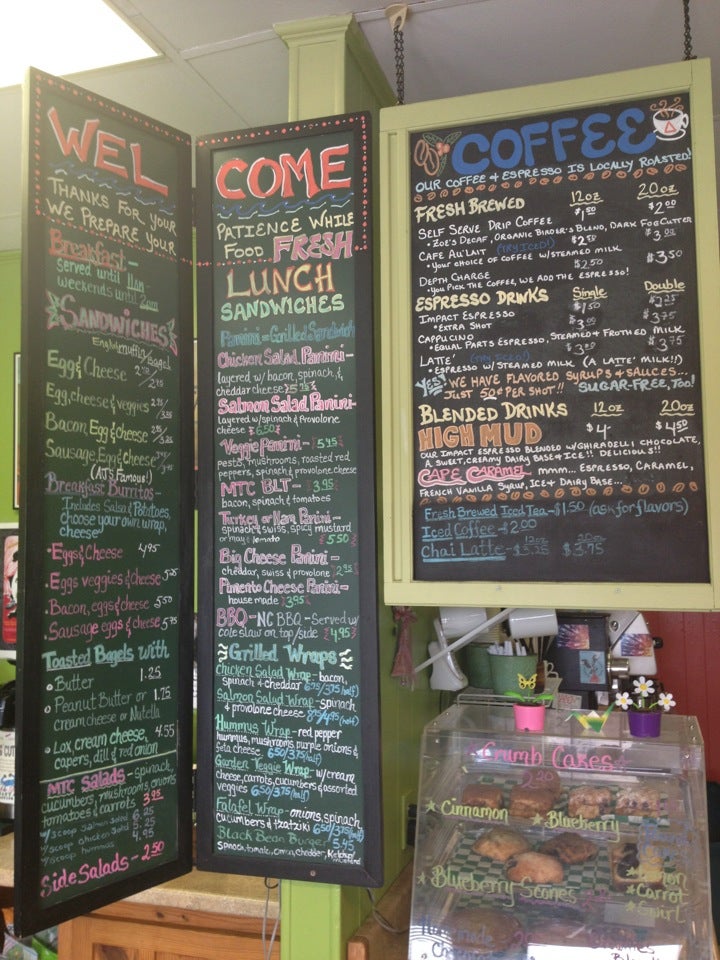 WEL
THANKS FOR YOUR
WE PREPARE YOUR
Breakfast-
served until 11am
weekends until 2pm
SANDWICHES
English muffin/bagel
Egg & Cheese
Egg, cheese & veggies
Bacon Egg & cheese
Sausage, Egg & cheese
(AJ'S Famous!)
Breakfast Burritos-
Includes Salsa & Potatoes,
choose your own wrap,
cheese
• Eggs & Cheese 4.95
• Eggs veggies & cheese 5.25
• Bacon, eggs & cheese 5.50
• Sausage eggs & cheese 5.75
Toasted Bagels with
• Butter 1.25
• Peanut Butter or 1.75
cream cheese or Nutella
• Lox, cream cheese, 4.55
capers, dill & red onion
MTC SALADS - spinach,
cucumbers, mushrooms, onions
tomatoes & carrots 3.95
w/ scoop salmon salad 6.25
w/ scoop chicken salad
w/ scoop hummus 4.95
Side Salads - 2.50
COME
PATIENCE WHILE
FOOD FRESH
LUNCH
SANDWICHES
Panini = Grilled Sandwich
Chicken Salad Panini-
layered w/ bacon, spinach, &
cheddar cheese
Salmon Salad Panini-
layered w/ spinach & provolone
cheese 6.50
Veggie Panini - 5.45
pesto, mushrooms, roasted red
peppers, spinach & provolone cheese
MTC BLT - 3.95
bacon, spinach & tomatoes
Turkey or Ham Panini-
spinach, swiss, spicy mustard
or mayo & tomato 5.50
Big Cheese Panini-
cheddar, swiss & provolone 2.95
Pimento Cheese Panini-
house made 3.95
BBQ - NC BBQ - Served w/
cole slaw on top/side 4.95
Grilled Wraps
Chicken Salad Wrap - bacon,
spinach & cheddar 6.75/3.75(half)
Salmon Salad Wrap - spinach
& provolone cheese 8.75/4.95(half)
Hummus Wrap - red pepper
hummus, mushrooms, purple onions &
feta cheese 6.50/3.75(half)
Garden Veggie Wrap - w/ cream
cheese, carrots, cucumbers & assorted
veggies 6.50/3.75(half)
Falafel Wrap - onions, spinach,
cucumbers & tzatziki 6.50/3.75(half)
Black Bean Burger 5.45
spinach, tomato, onion, cheddar, ketchup,
mustard
COFFEE
OUR COFFEE & ESPRESSO IS LOCALLY ROASTED!
FRESH BREWED 12oz 20oz
SELF SERVE DRIP COFFEE $1.50 $2.00
• ZOE'S DECAF, ORGANIC BIRDER'S BLEND, DARK FOGCUTTER
CAFE AU'LAIT (TRY ICED!) $2.50 $3.00
• YOUR CHOICE OF COFFEE W/ STEAMED MILK
DEPTH CHARGE $2.50 $3.50
• YOU PICK THE COFFEE, WE ADD THE ESPRESSO!
ESPRESSO DRINKS Single Double
IMPACT ESPRESSO $1.50 $2.25
• EXTRA SHOT
CAPPUCINO $3.00 $3.75
• EQUAL PARTS ESPRESSO, STEAMED & FROTHED MILK
LATTE' (TRY ICED!) $3.00 $3.75
• ESPRESSO W/ STEAMED MILK (A LATTE' MILK!!)
YES! WE HAVE FLAVORED SYRUPS & SAUCES...
JUST 50¢ PER SHOT!! SUGAR-FREE, TOO!
BLENDED DRINKS 12oz 20oz
HIGH MUD $4 $4.50
OUR IMPACT ESPRESSO BLENDED W/ GHIRADELLI CHOCOLATE,
A SWEET, CREAMY DAIRY BASE & ICE!! DELICIOUS!!
CAFE CARAMEL MMMM... ESPRESSO, CARAMEL,
FRENCH VANILLA SYRUP, ICE & DAIRY BASE...
Fresh Brewed Iced Tea - $1.50 (ask for flavors)
Iced Coffee - $2.00
Chai Latte - 12oz $3.25 20oz $3.75
Crumb Cakes
2.20
Cinnamon
Blueberry
Blueberry Scones
Carrot